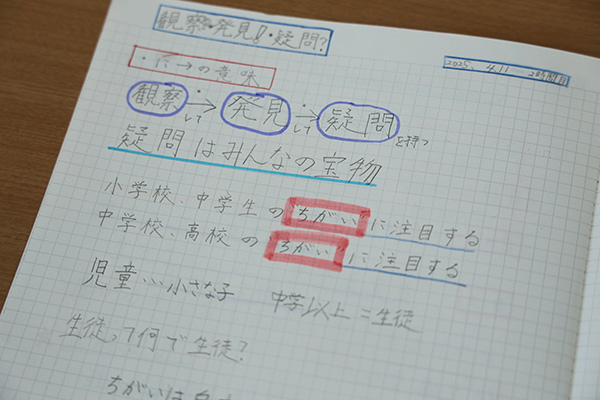 観察・発見!・疑問?
2025. 4.11 2時間目
・「→の意味
観察 → して 発見 → して 疑問 を持つ
疑問はみんなの宝物
小学校、中学生の"ちがい"に注目する
中学校、高校の"ちがい"に注目する
児童…小さな子 中学以上=生徒
生徒って何で生徒?
ちがいは